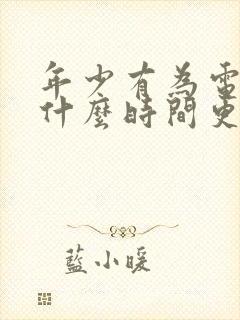 年少有為電
什麼時間更
藍小暖